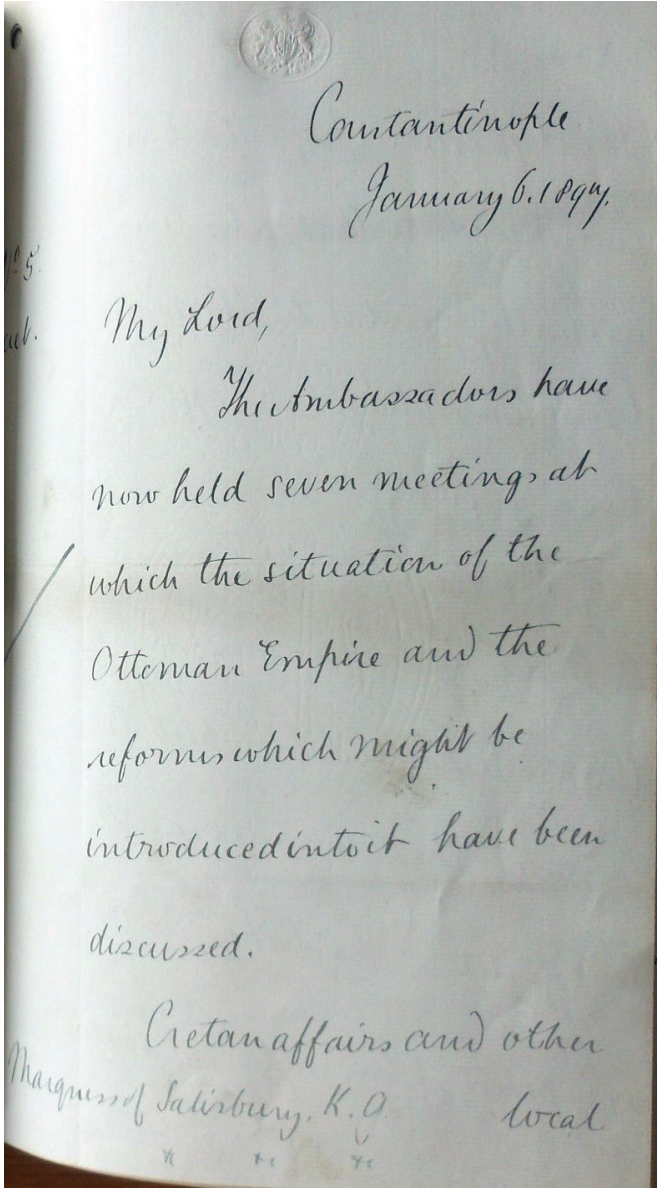 Constantinople
January 6. 1897.
5.
My Lord,
The Ambassadors have
now held seven meetings at
which the situation of the
Ottoman Empire and the
reforms which might be
introduced into it have been
discussed.
Cretan affairs and other
Marquess of Salisbury. K.G.
local